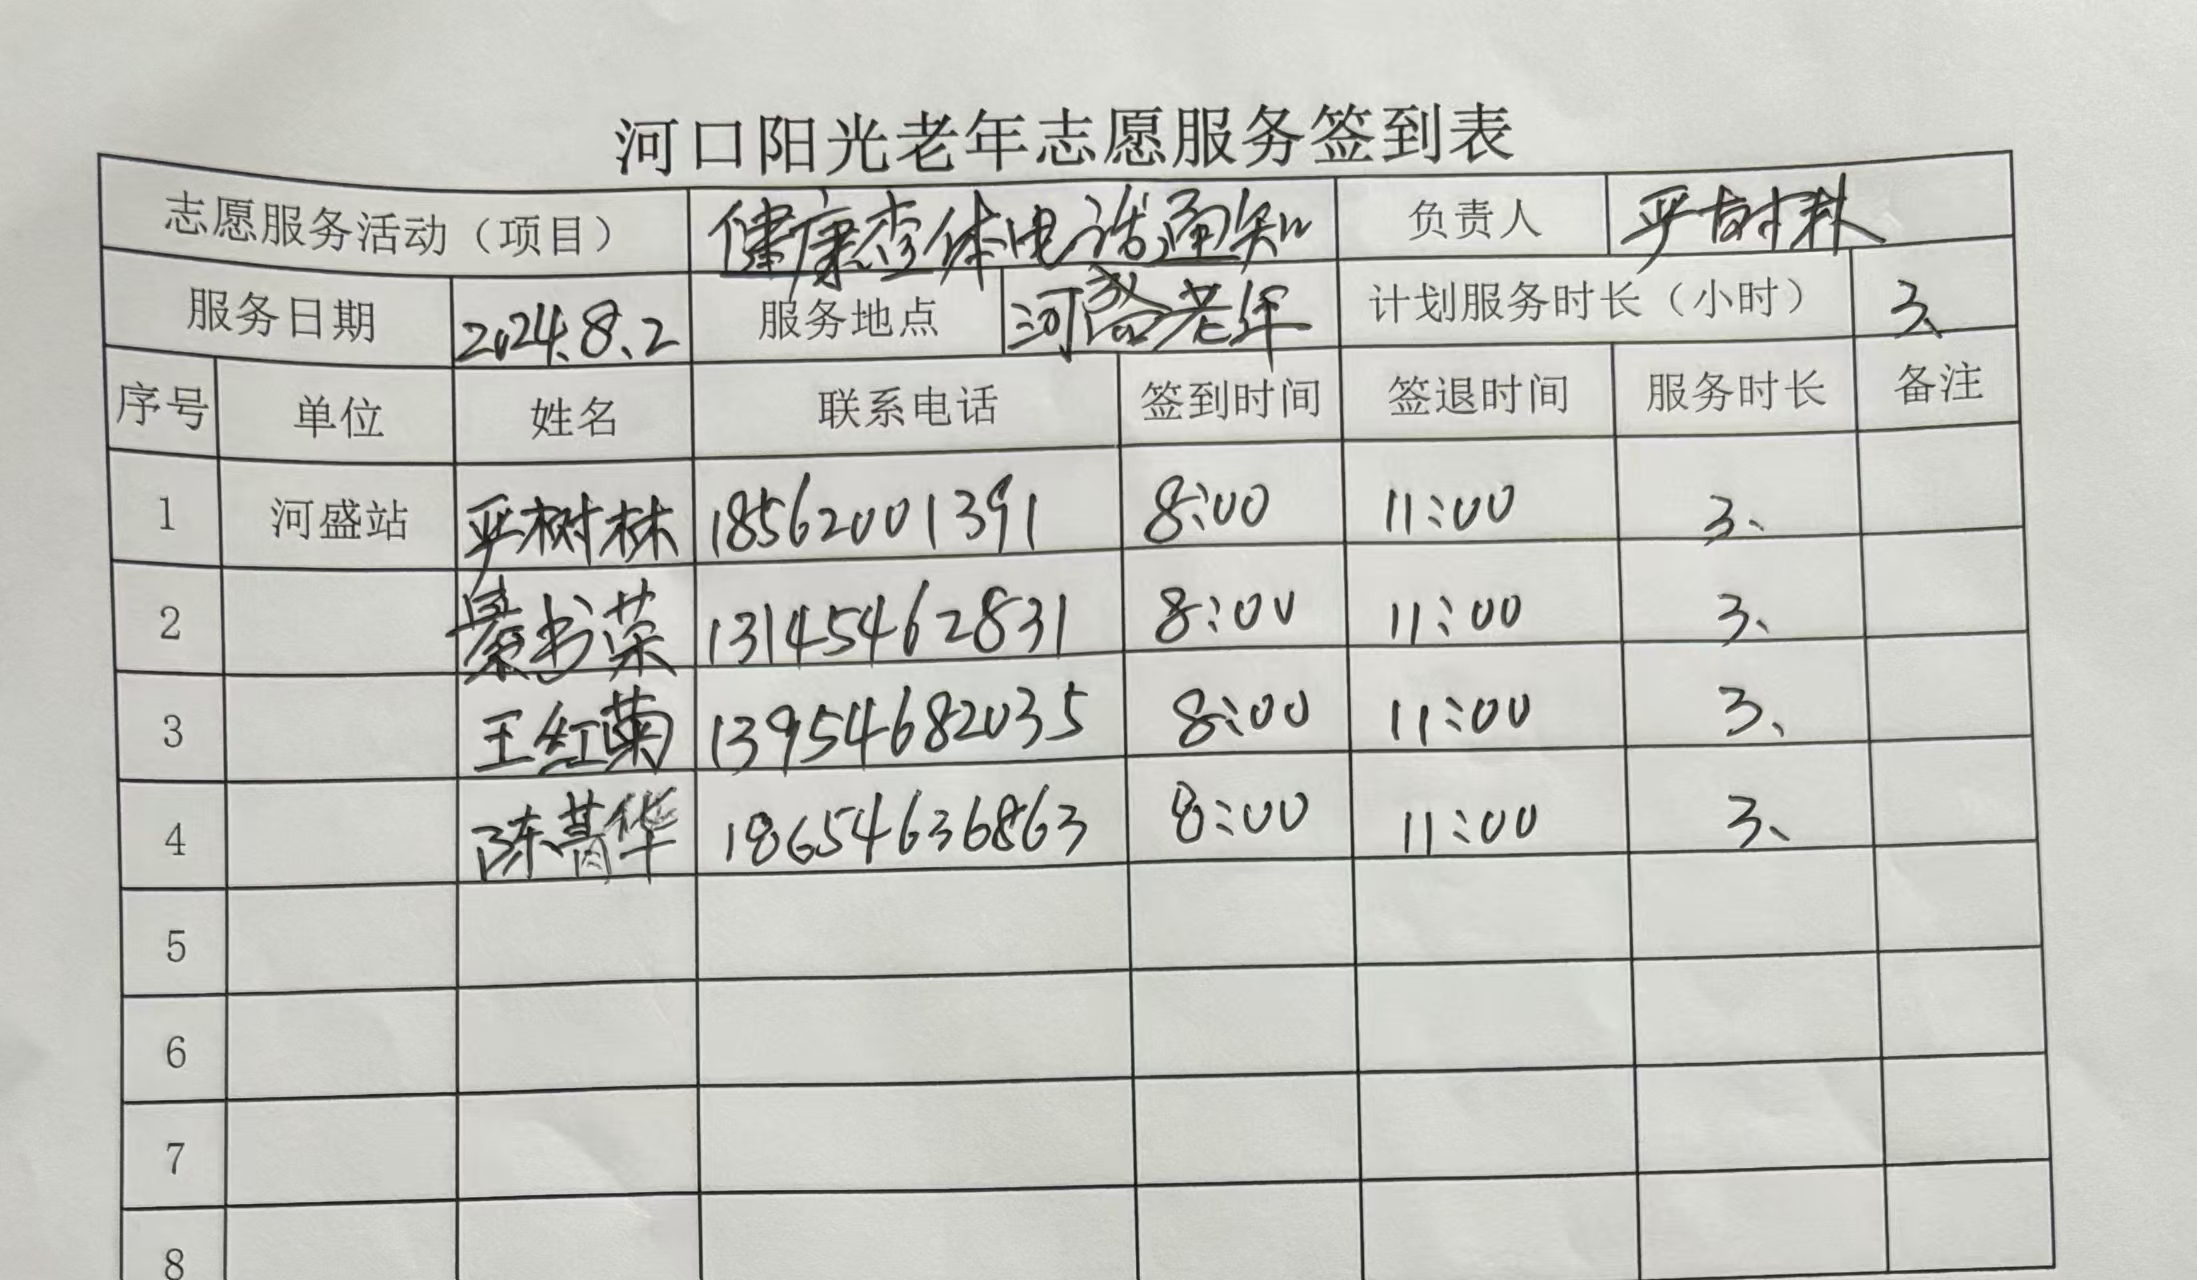 河口阳光老年志愿服务签到表
志愿服务活动（项目） 健康查体电话通知 负责人 严树林
服务日期 2024.8.2 服务地点 河 老年 计划服务时长（小时） 3、
序号 单位 姓名 联系电话 签到时间 签退时间 服务时长 备注
1 河盛站 严树林 18562001391 8:00 11:00 3、
2 书荣 13145462831 8:00 11:00 3、
3 王红菊 13954682035 8:00 11:00 3、
4 陈菁华 18654636863 8:00 11:00 3、
5
6
7
8